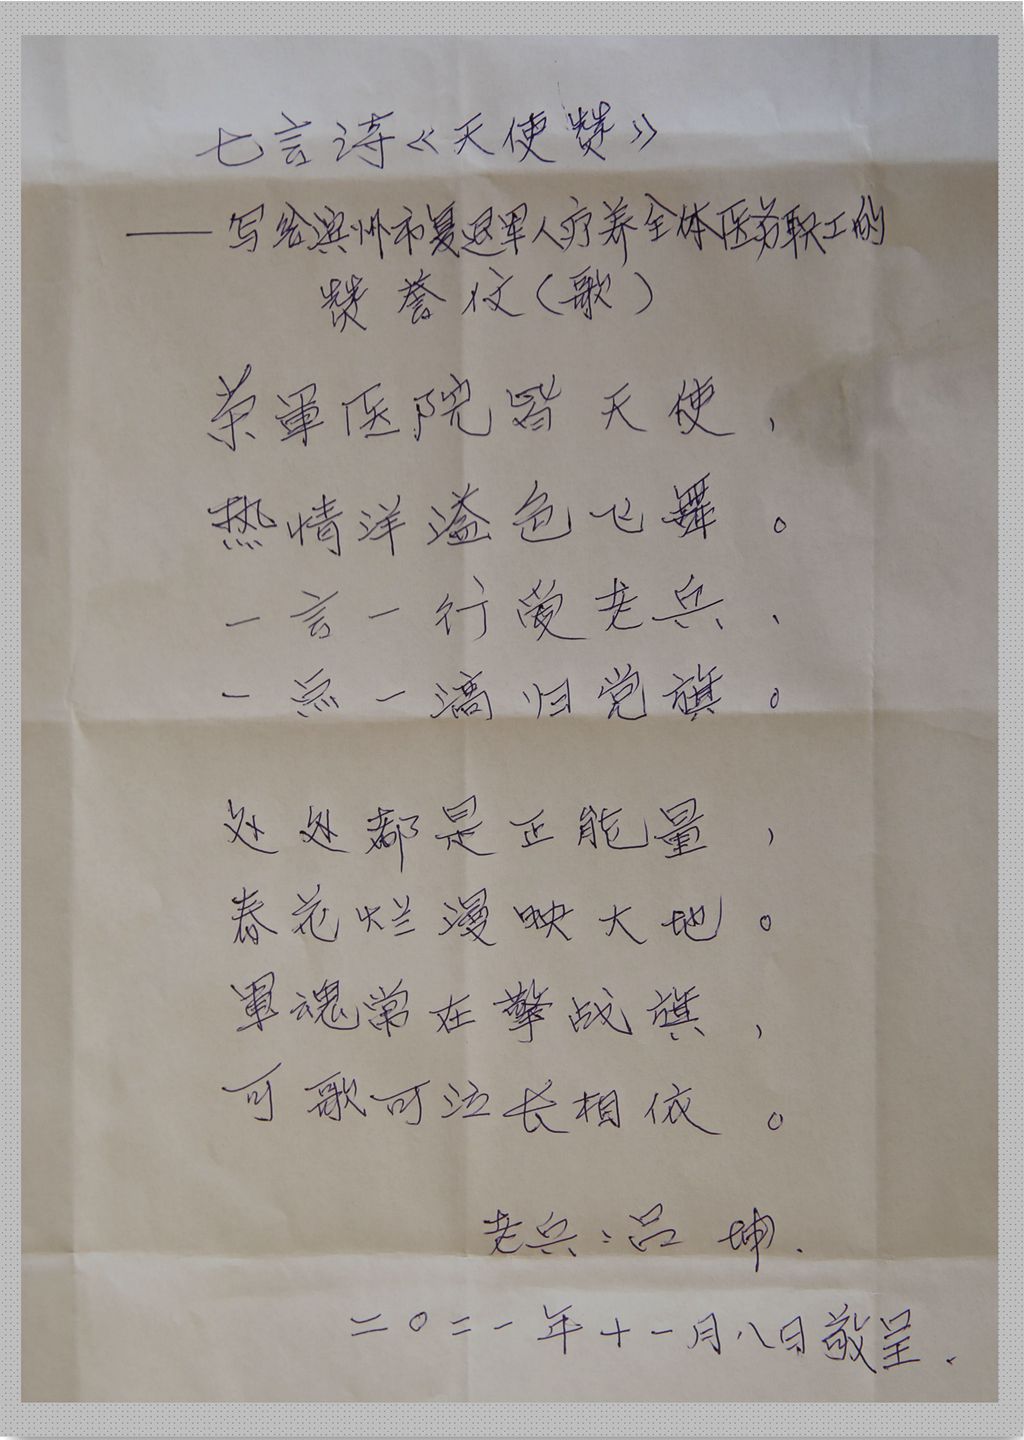 七言诗《天使赞》
——写给滨州市复退军人疗养全体医务职工的
赞誉文(歌)
荣軍医院皆天使,
热情洋溢色飞舞。
一言一行爱老兵、
一点一滴归党旗。
处处都是正能量,
春花烂漫映大地。
軍魂常在擎战旗,
可歌可泣长相依。
老兵:吕坤.
二〇二一年十一月八日敬呈.